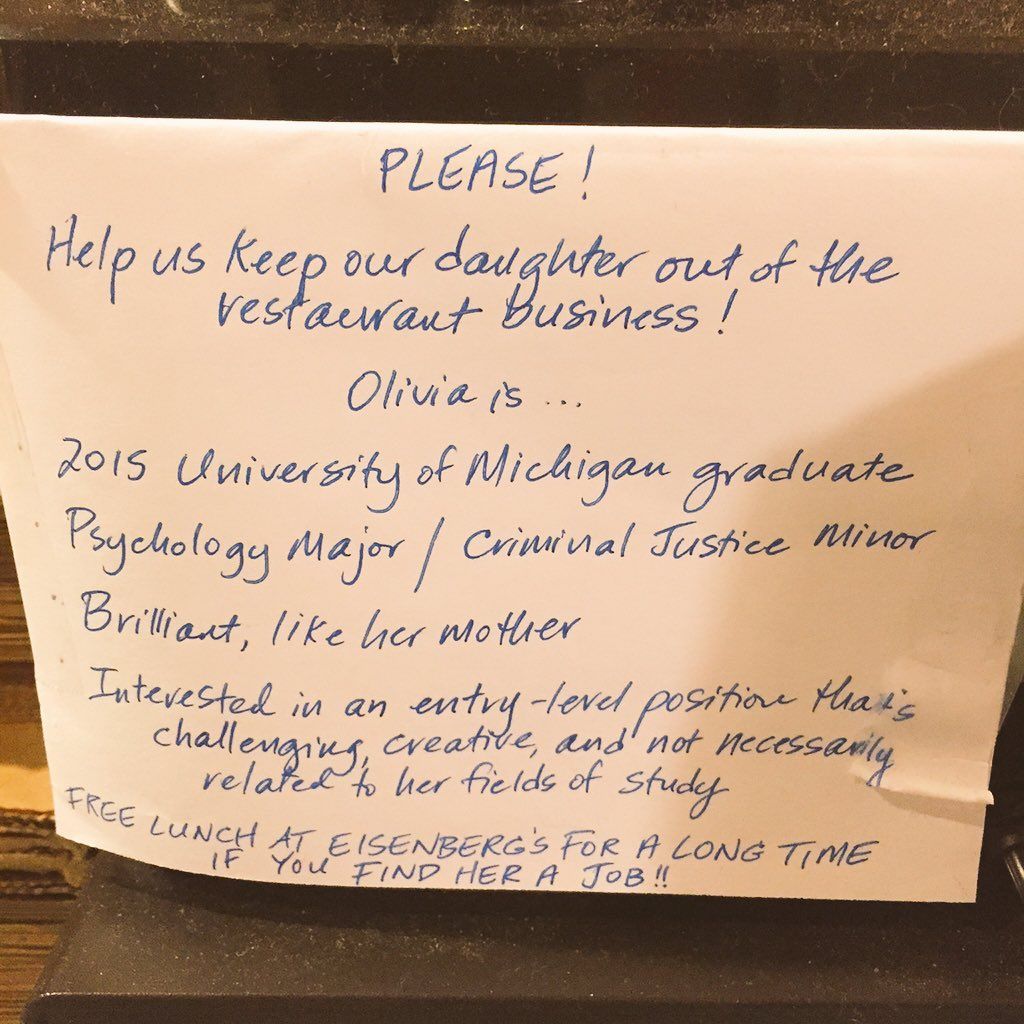 PLEASE!
Help us keep our daughter out of the
restaurant business!
Olivia is ...
2015 University of Michigan graduate
Psychology Major / Criminal Justice Minor
Brilliant, like her mother
Interested in an entry-level position that's
challenging, creative, and not necessarily
related to her fields of study
FREE LUNCH AT EISENBERG'S FOR A LONG TIME
IF YOU FIND HER A JOB!!